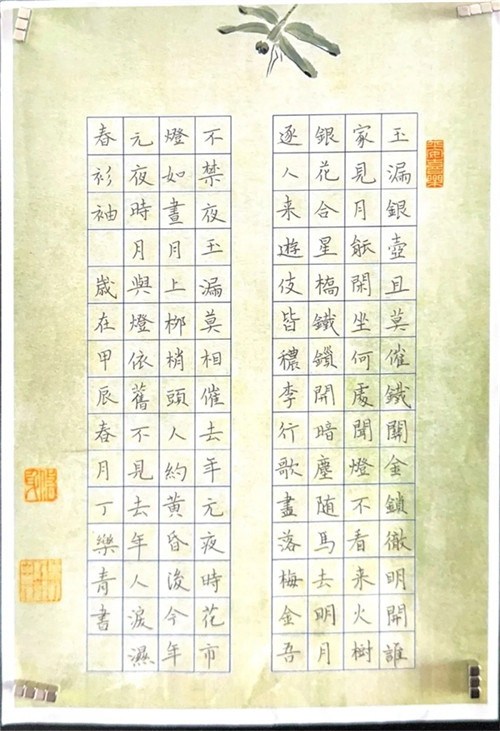 玉漏銀壺且莫催鐵關金鎖徹明開誰
家見月能閑坐何處聞燈不看来火樹
銀花合星橋鐵鎖開暗塵随馬去明月
逐人来遊伎皆穠李行歌盡落梅金吾
不禁夜玉漏莫相催去年元夜時花市
燈如晝月上柳梢頭人約黄昏後今年
元夜時月與燈依舊不見去年人淚濕
春衫袖 歳在甲辰春月丁樂青書